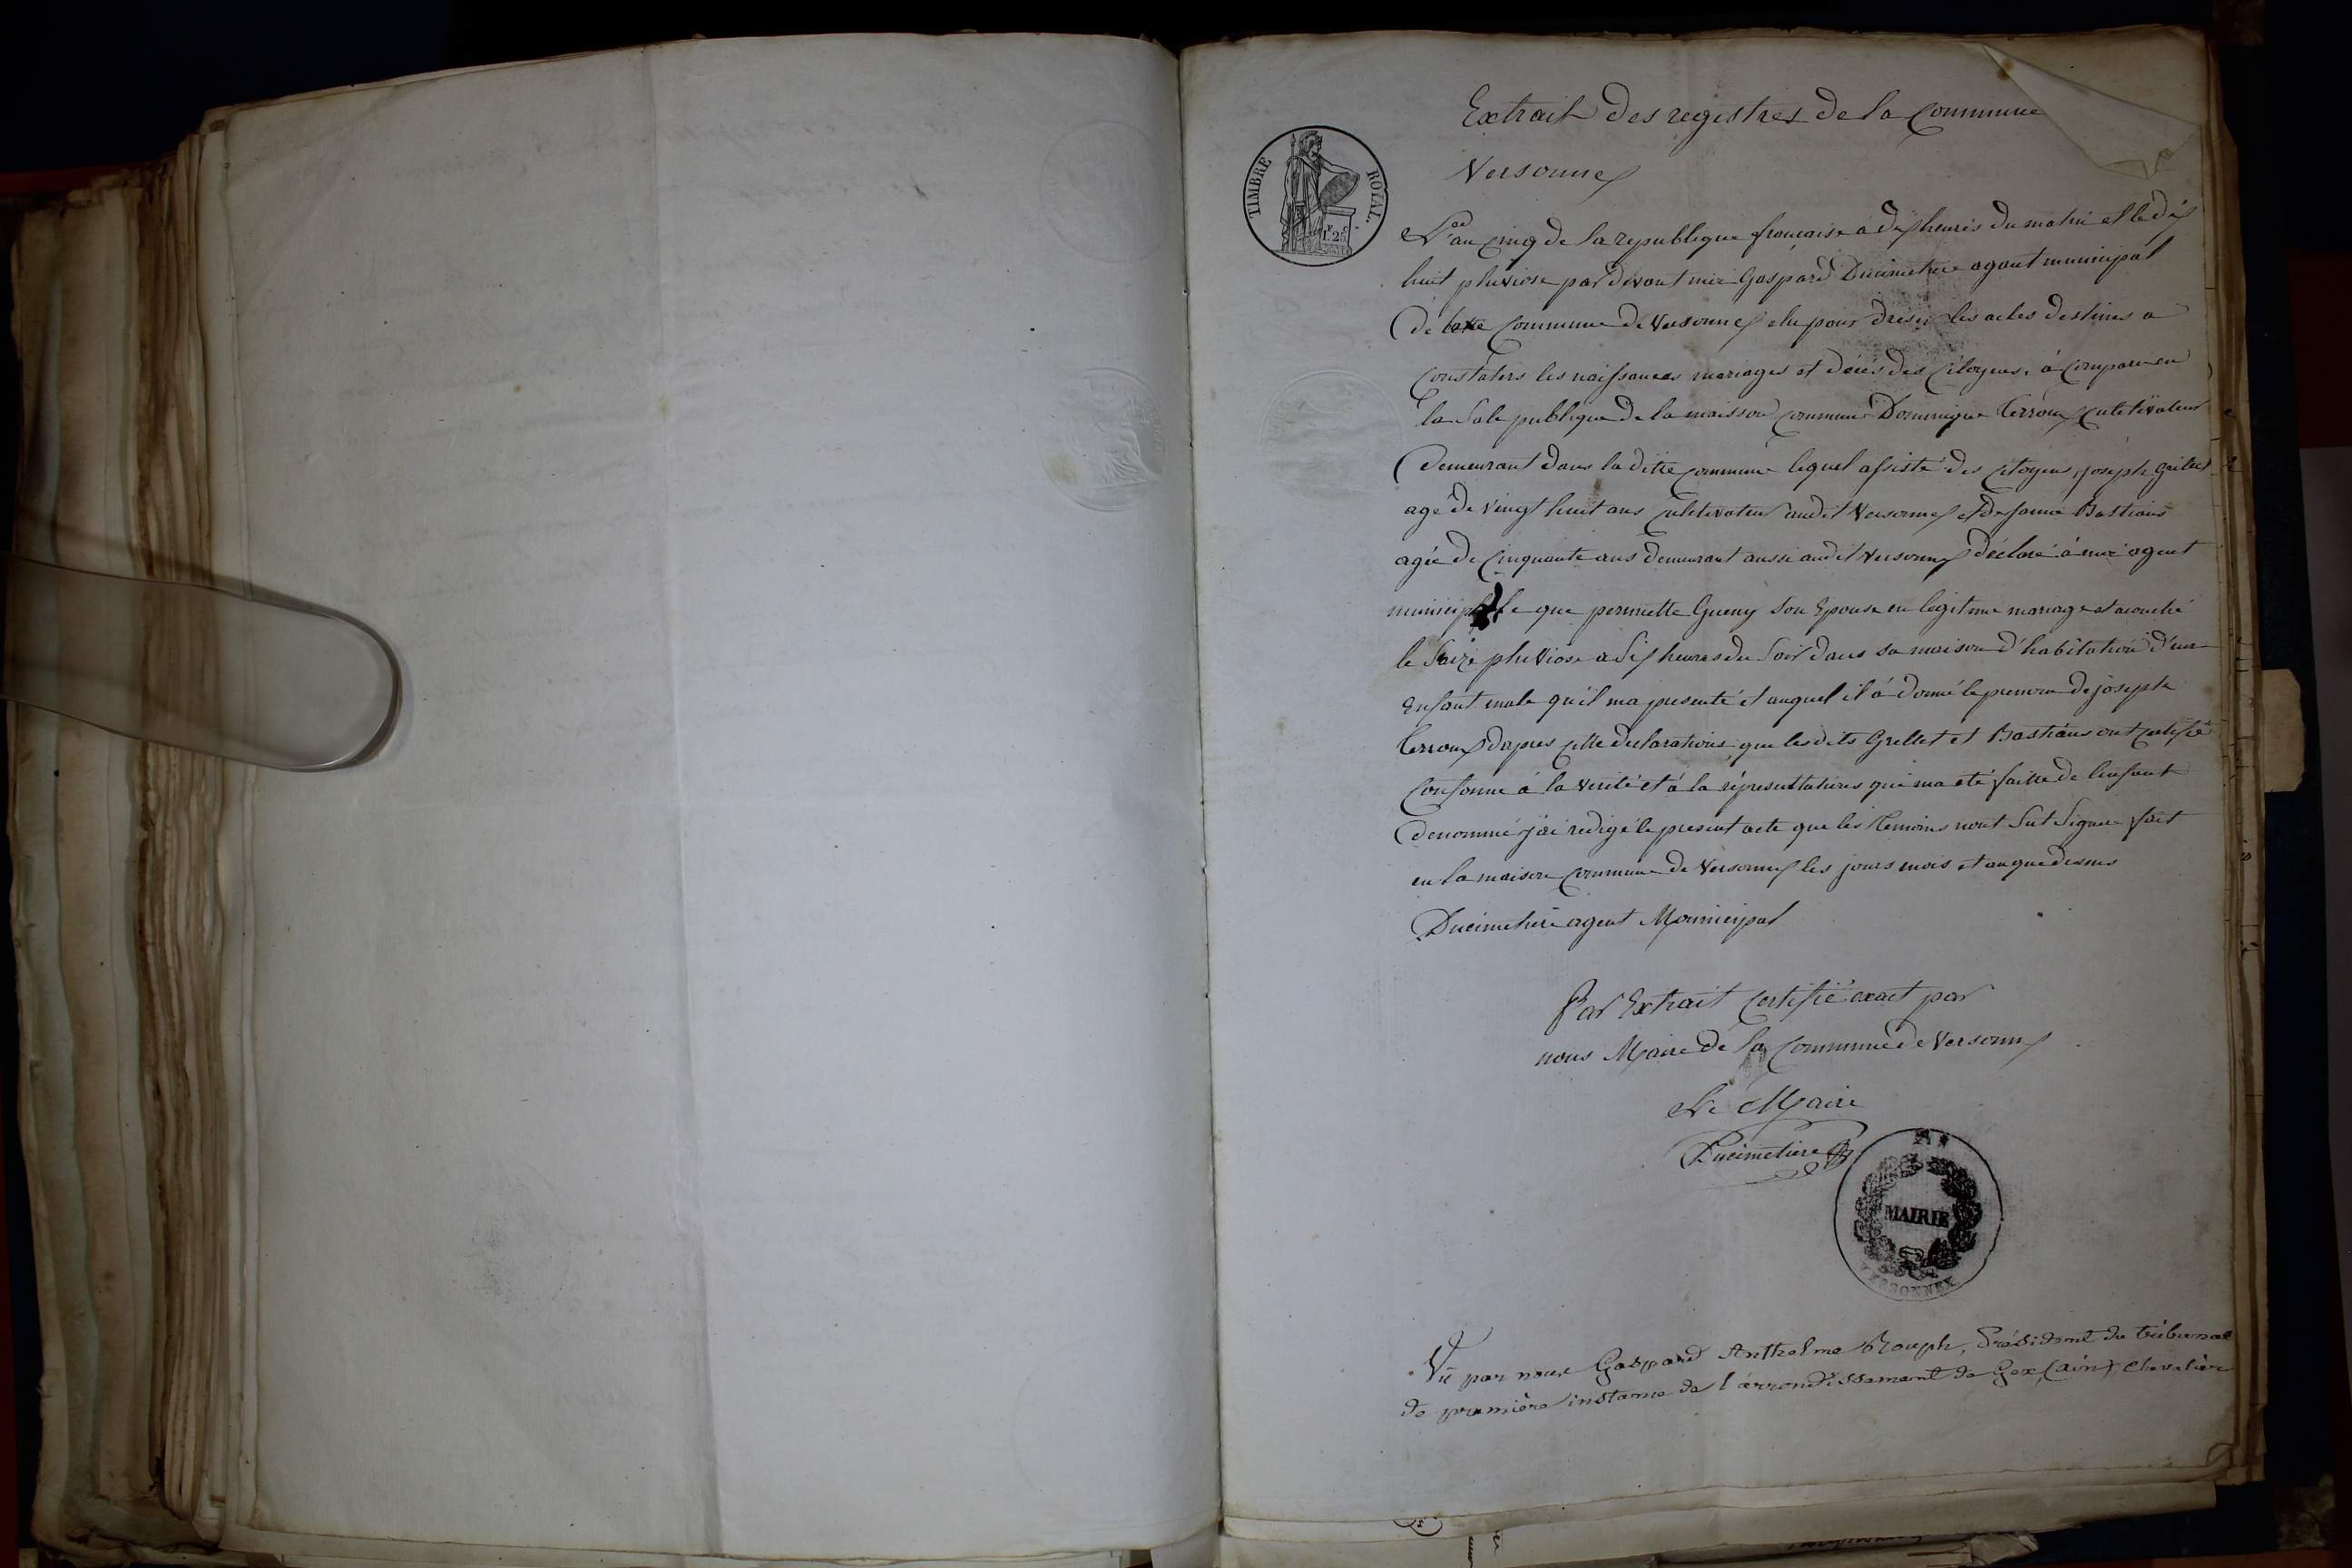 Extrait des registres de la Commune
Versonnex
TIMBRE ROYAL.
L'an Cinq de la republique francaise à dix heures du matin et le dix
huit pluviose par devant moi Gaspard Ducimetiere agent municipal
de la commune de Versonnex elu pour dreser les actes destines a
Constaters les naissances mariages et décés des Citoyens, à Comparu en
la Sale publique de la maisson commune Dominique Terroux Cultivateur
Demeurant dans la ditte commune lequel assisté des citoyens joseph Grillet
agé de vingt huit ans Cultivateur audit Versonnex et de janne Bastians
agée de Cinquante ans demeurant aussi audit Versonnex déclaré à moi agent
municipal que pernette Gueny Son Epouse en legitime mariage est acouché
le Seize pluviose a Six heures du Soir dans sa maison d'habitation d'un
Enfant male qu'il ma presenté et auquel il à donné le prenom de joseph
Terroux dapres cette declarations que lesdits Grillet et Bastians ont certifié
Conforme à la verité et à la répresentations qui ma eté faitte de lenfant
denommé j'ai redigé le present acte que les temoins nont Sut Signer fait
en la maison commune de Versonnex les jours mois et an que dessus
Ducimetiere agent Municipal
Par Extrait certifié exact par
nous Maire de la Commune de Versonnex
Le Maire
Ducimetiere
MAIRIE
VERSONNEX
Vû par nous Gaspard Anthelme Rouph, Président du tribunal
de première instance de l'arrondissement de Gex, (ain), chevalier